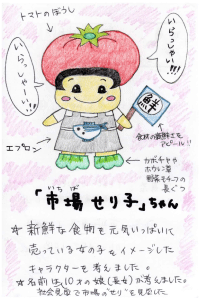 トマトのぼうし
いらっしゃい!!!
いらっしゃーい!!
鮮
食材の新鮮さを
アピール!!
エプロン
カボチャや
ホウレン草
野菜モチーフの
長ぐつ
いちば
「市場 せり子」ちゃん
※新鮮な食物を元気いっぱいに
売っている女の子をイメージした
キャラクターを考えました。
※名前は、10才の娘(長女)が考えました。
社会見学で市場の"せり"を見学した